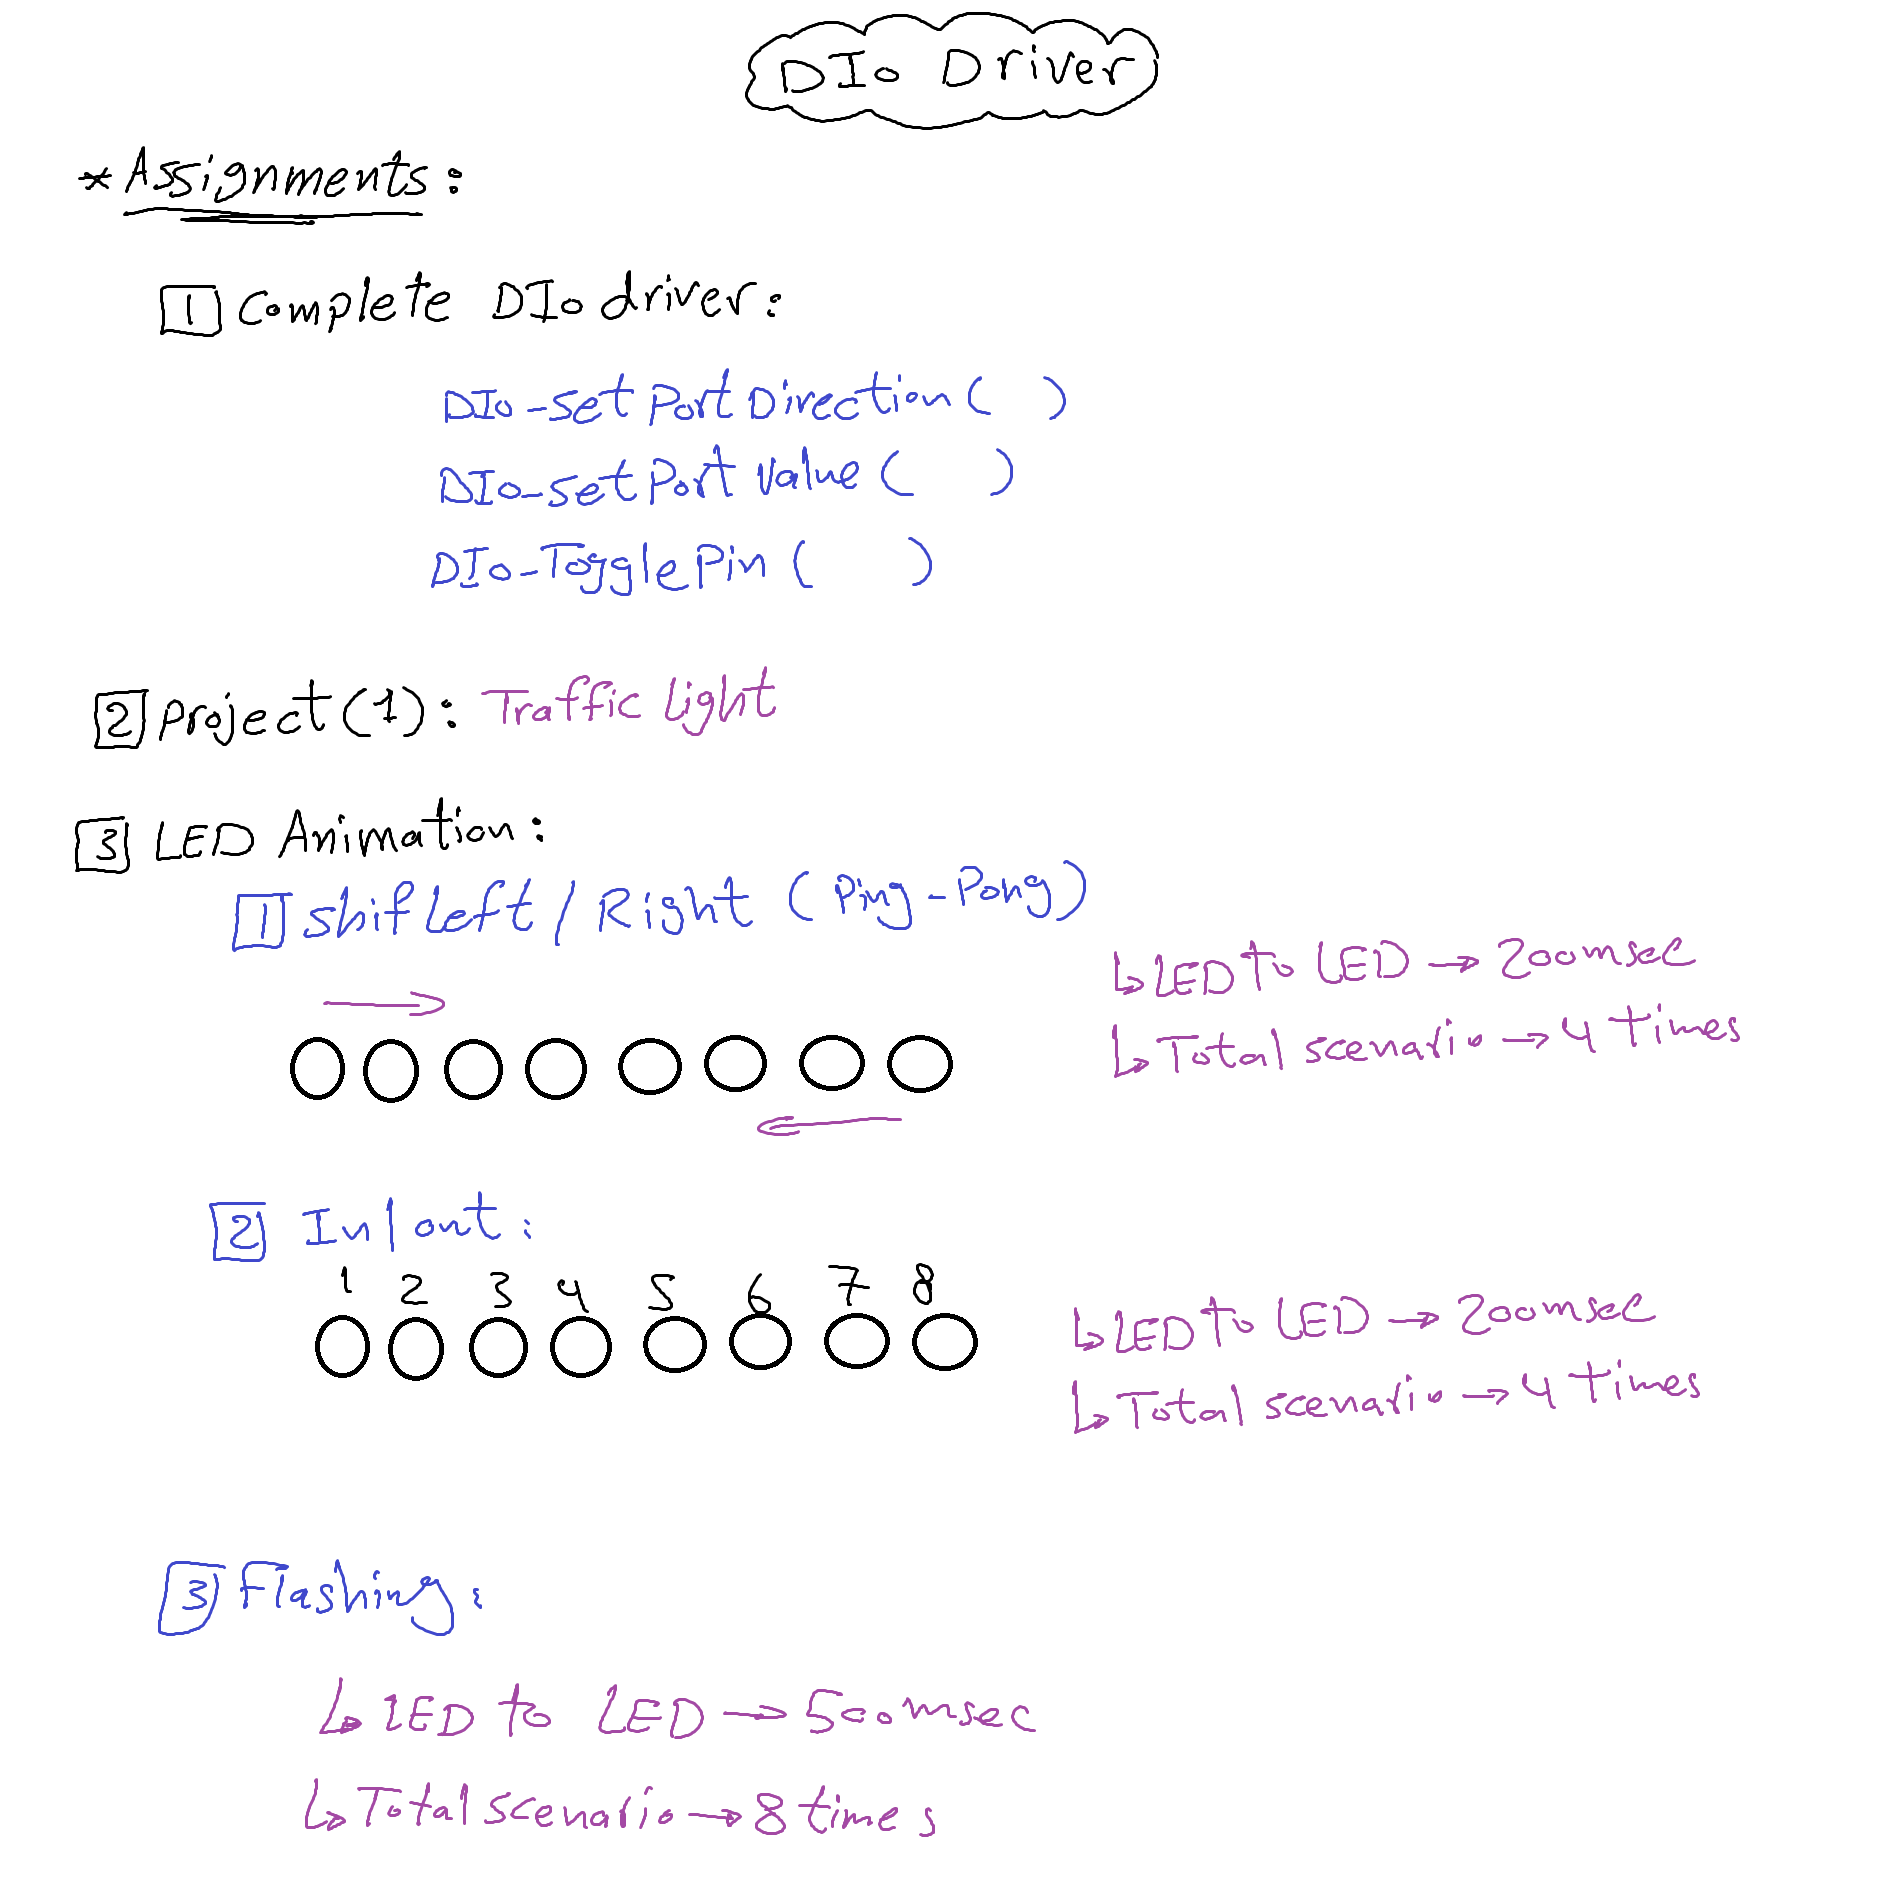 DIo Driver
* Assignments:
1 Complete DIo driver:
DIo-set Port Direction ( )
DIo-set Port Value ( )
DIo-Toggle Pin ( )
2 Project (1): Traffic light
3 LED Animation:
1 Shif Left / Right (Ping-Pong)
↳ LED to LED → 200msec
↳ Total scenario → 4 times
2 In/out:
1 2 3 4 5 6 7 8
↳ LED to LED → 200msec
↳ Total scenario → 4 times
3 Flashing:
↳ LED to LED → 500msec
↳ Total scenario → 8 times